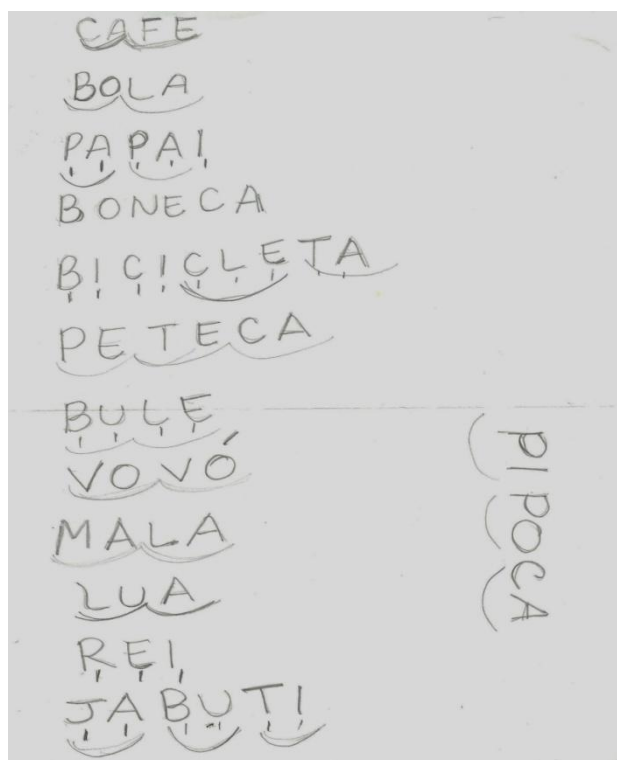 CAFE
BOLA
PAPAI
BONECA
BICICLETA
PETECA
BULE
VOVÓ
MALA
LUA
REI
JABUTI
PIPOCA